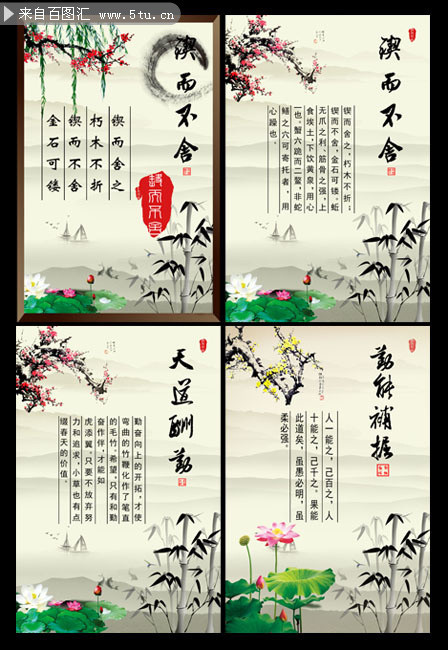 来自百图汇 www.5tu.cn
锲而不舍
锲而舍之
朽木不折
锲而不舍
金石可镂
锲而不舍
锲而不舍
锲而舍之,朽木不折;
锲而不舍,金石可镂。蚯
无爪之利、筋骨之强,上
食埃土,下饮黄泉,用心
一也。蟹六跪而二螯,非蛇
鳝之穴可寄托者,用
心躁也。
天道酬勤
勤奋向上的开拓,才使
弯曲的竹鞭化作了笔直
的毛竹。希望,只有和勤
奋作伴,才能如
虎添翼。只要不放弃努
力和追求,小草也有点
缀春天的价值。
勤能补拙
人一能之,己百之,人
十能之,己千之。果能
此道矣,虽愚必明,虽
柔必强。